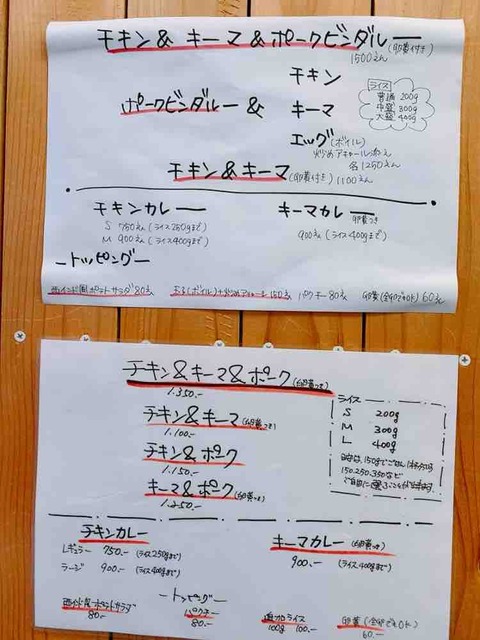 チキン&キーマ&ポークビンダルー(卵黄付き)
1500えん
チキン
ポークビンダルー&キーマ
エッグ(ボイル)
炒めアチャール添え
各1250えん
ライス
普通 200g
中盛 300g
大盛 400g
チキン&キーマ(卵黄付き)1100えん
チキンカレー
S 750えん(ライス250gまで)
M 900えん(ライス400gまで)
キーマカレー 卵黄つき
900えん(ライス400gまで)
ートッピングー
西インド風ポテトサラダ 80えん
(ボイル)+炒めアチャール 150えん
パクチー 80えん
卵黄(全卵でもOK) 60えん
チキン&キーマ&ポーク(卵黄つき)
1.350.-
チキン&キーマ(卵黄つき)
1.100.-
チキン&ポーク
1.150.-
キーマ&ポーク(卵黄つき)
1.250.-
ライス
S 200g
M 300g
L 400g
150.250.350など
チキンカレー
レギュラー 750.-(ライス250gまで)
ラージ 900.-(ライス400gまで)
キーマカレー(卵黄つき)
900.-(ライス400gまで)
ートッピングー
西インド風ポテトサラダ
80.-
パクチー
80.-
追加ライス
100g 100.-
卵黄(全卵でもOK)
60.-